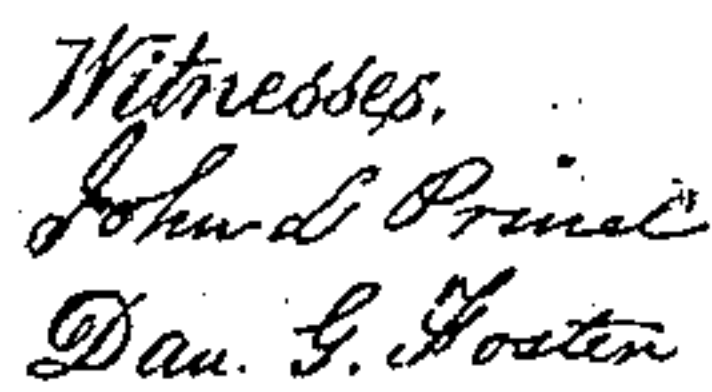 Witnesses.
John L
Dan. G. Foster